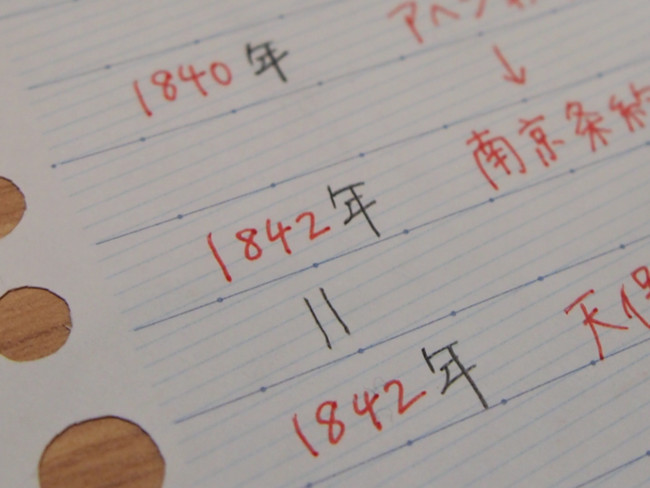 1840年 アヘン
↓
南京条約
1842年
||
1842年 天保